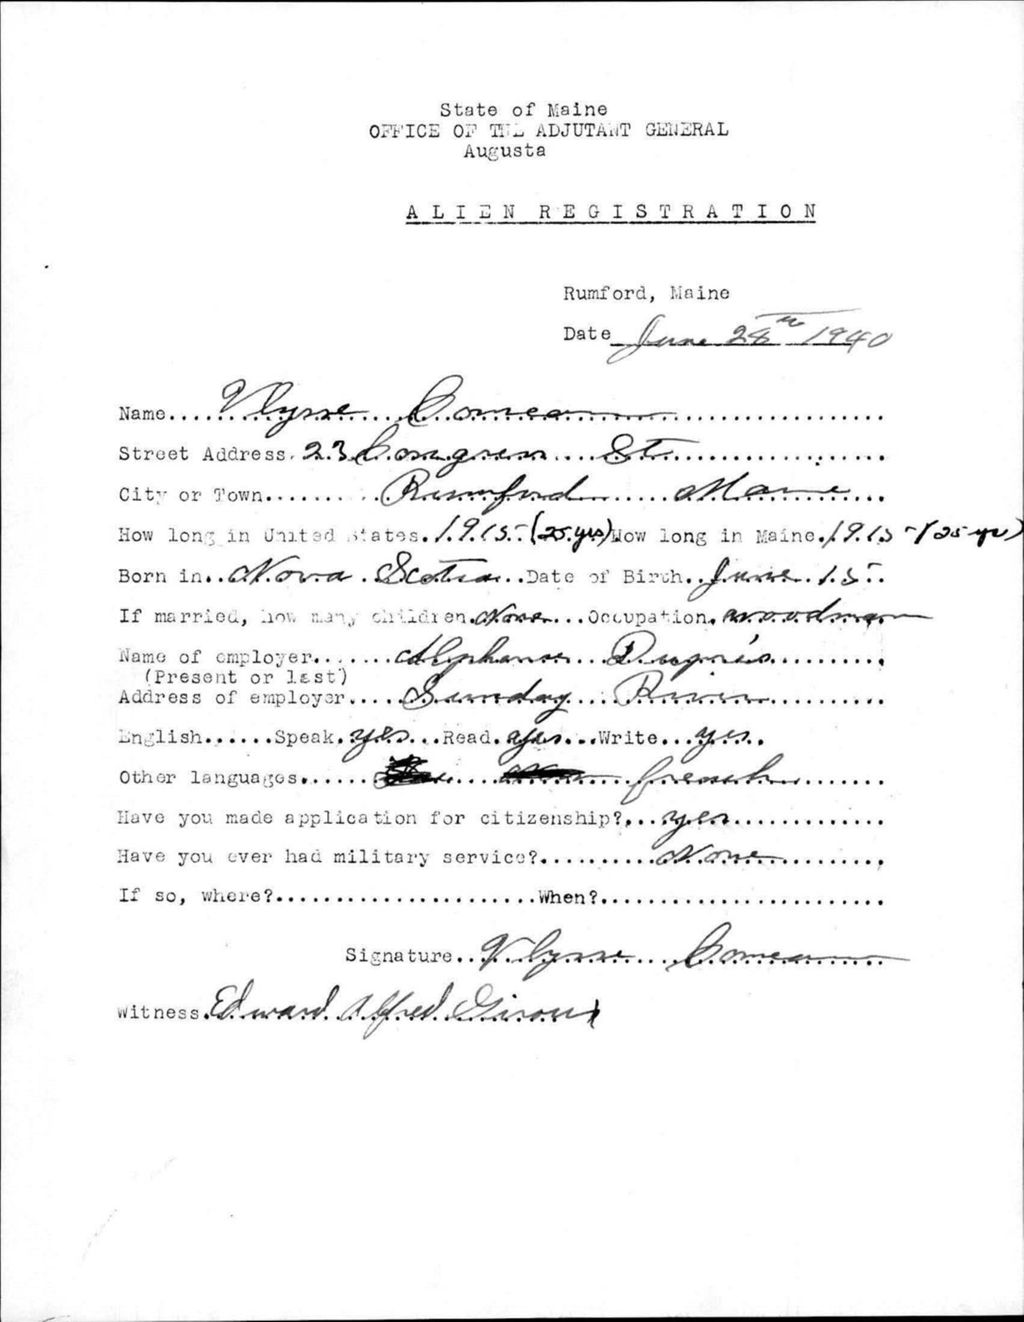 State of Maine
OFFICE OF THE ADJUTANT GENERAL
Augusta
ALIEN REGISTRATION
Rumford, Maine
Date June 28th 1940
Name Ulysse Comeau
Street Address 23 Congress St
City or Town Rumford Maine
How long in United States 1915 (25 yrs) How long in Maine 1915 (25 yrs)
Born in Nova Scotia Date of Birth June 15
If married, how many children None Occupation woodman
Name of employer Alphonse
(Present or last)
Address of employer Sunday River
English Speak yes Read yes Write yes
Other languages french
Have you made application for citizenship? yes
Have you ever had military service? None
If so, where? When?
Signature Ulysse Comeau
Witness Edward Alfred Giroux